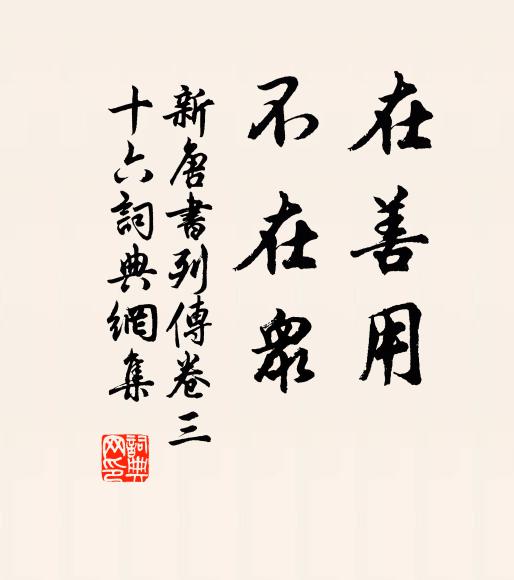 在善用
不在衆
新唐書列傳卷三
十六詞典網集
詞典网印